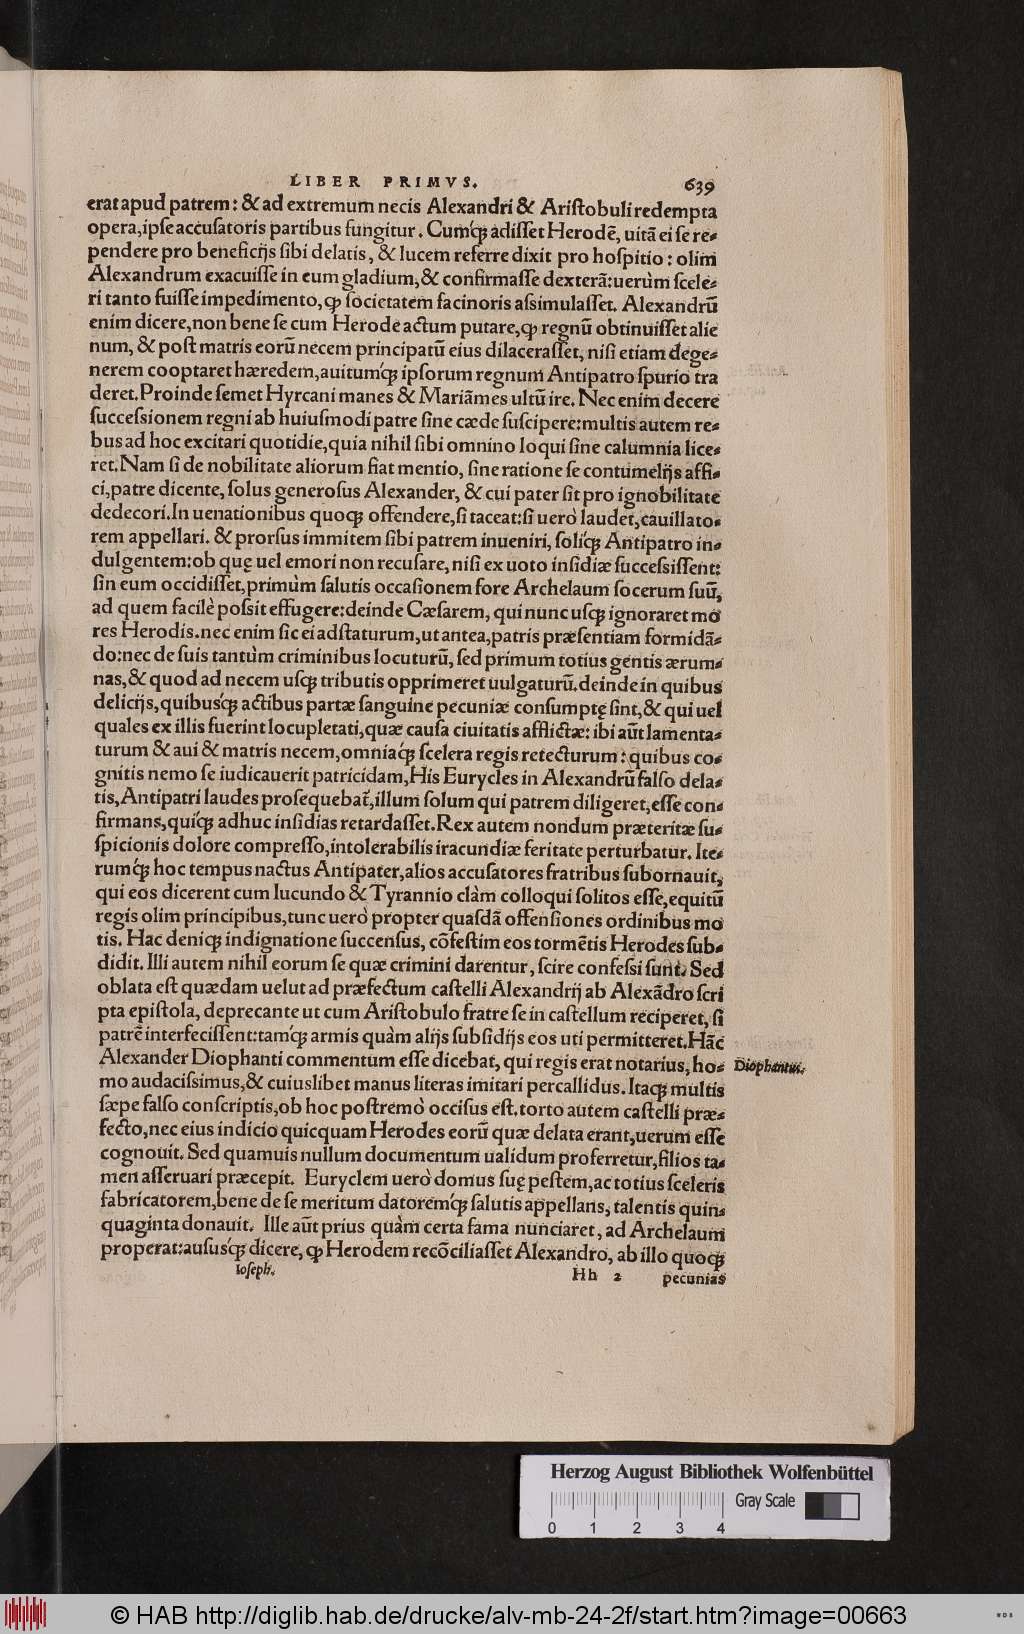 LIBER PRIMVS. 639
erat apud patrem: & ad extremum necis Alexandri & Aristobuli redempta
opera, ipse accusatoris partibus fungitur. Cumq́; adisset Herodē, uitā ei se re-
pendere pro beneficijs sibi delatis, & lucem referre dixit pro hospitio: olim
Alexandrum exacuisse in eum gladium, & confirmasse dexterā: uerùm scele-
ri tanto fuisse impedimento, ꝙ societatem facinoris assimulasset. Alexandrū
enim dicere, non bene se cum Herode actum putare, ꝙ regnū obtinuisset alie
num, & post matris eorū necem principatū eius dilacerasset, nisi etiam dege-
nerem cooptaret hæredem, auitumq́; ipsorum regnum Antipatro spurio tra
deret. Proinde semet Hyrcani manes & Mariāmes ultū ire. Nec enim decere
successionem regni ab huiusmodi patre sine cæde suscipere: multis autem re-
bus ad hoc excitari quotidie, quia nihil sibi omnino loqui sine calumnia lice-
ret. Nam si de nobilitate aliorum fiat mentio, sine ratione se contumelijs affi-
ci, patre dicente, solus generosus Alexander, & cui pater sit pro ignobilitate
dedecori. In uenationibus quoq; offendere, si taceat: si uerò laudet, cauillato-
rem appellari. & prorsus immitem sibi patrem inueniri, soliq́; Antipatro in-
dulgentem: ob quę uel emori non recusare, nisi ex uoto insidiæ successissent:
sin eum occidisset, primùm salutis occasionem fore Archelaum socerum suū,
ad quem facilè possit effugere: deinde Cæsarem, qui nunc usq; ignoraret mo
res Herodis. nec enim sic ei adstaturum, ut antea, patris præsentiam formidā-
do: nec de suis tantùm criminibus locuturū, sed primum totius gentis ærum-
nas, & quod ad necem usq; tributis opprimeret uulgaturū. deinde in quibus
delicijs, quibusq́; actibus partæ sanguine pecuniæ consumptę sint, & qui uel
quales ex illis fuerint locupletati, quæ causa ciuitatis afflictæ: ibi aūt lamenta-
turum & aui & matris necem, omniaq́; scelera regis retecturum: quibus co-
gnitis nemo se iudicauerit patricidam, His Eurycles in Alexandrū falso dela-
tis, Antipatri laudes prosequebat̃, illum solum qui patrem diligeret, esse con-
firmans, quiq́; adhuc insidias retardasset. Rex autem nondum præteritæ su-
spicionis dolore compresso, intolerabilis iracundiæ feritate perturbatur. Ite-
rumq́; hoc tempus nactus Antipater, alios accusatores fratribus subornauit,
qui eos dicerent cum Iucundo & Tyrannio clàm colloqui solitos esse, equitū
regis olim principibus, tunc uerò propter quasdā offensiones ordinibus mo
tis. Hac deniq; indignatione succensus, cōfestim eos tormētis Herodes sub-
didit. Illi autem nihil eorum se quæ crimini darentur, scire confessi sunt. Sed
oblata est quædam uelut ad præfectum castelli Alexandrij ab Alexādro scri
pta epistola, deprecante ut cum Aristobulo fratre se in castellum reciperet, si
patrē interfecissent: tamq́; armis quàm alijs subsidijs eos uti permitteret. Hāc
Alexander Diophanti commentum esse dicebat, qui regis erat notarius, ho- Diophantus.
mo audacissimus, & cuiuslibet manus literas imitari percallidus. Itaq; multis
sæpe falso conscriptis, ob hoc postremò occisus est. torto autem castelli præ-
fecto, nec eius indicio quicquam Herodes eorū quæ delata erant, uerum esse
cognouit. Sed quamuis nullum documentum ualidum proferretur, filios ta-
men asseruari præcepit. Euryclem uerò domus suę pestem, ac totius sceleris
fabricatorem, bene de se meritum datoremq́; salutis appellans, talentis quin-
quaginta donauit. Ille aūt prius quàm certa fama nunciaret, ad Archelaum
properat: aususq́; dicere, ꝙ Herodem recōciliasset Alexandro, ab illo quoq;
Ioseph. Hh 2 pecunias
Herzog August Bibliothek Wolfenbüttel
Gray Scale
0 1 2 3 4
© HAB http://diglib.hab.de/drucke/alv-mb-24-2f/start.htm?image=00663